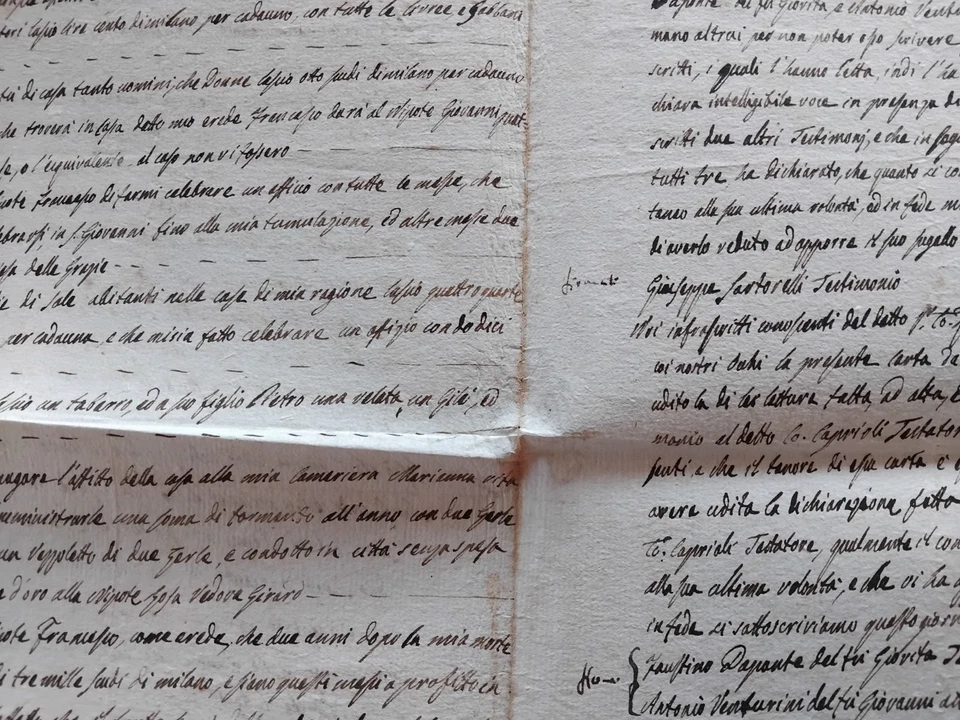 lascio lire cento di milano per cadauno, con tutte le livree e gabbani
di casa tanto uomini, che Donne lascio otto scudi di milano per cadauno
che troverà in casa detto mio erede Francesco darà al Nipote Giovanni quat=
o l'equivalente al caso non vi fossero
Francesco di farmi celebrare un officio con tutte le messe, che
in S. Giovanni fino alla mia tumulazione, ed altre messe due
delle Grazie
di Sale abitanti nelle case di mia ragione lascio quattro quarte
per cadauna, e che mi sia fatto celebrare un offizio con dodici
un tabarro, ed a suo figlio Pietro una velata, un Gilé, ed
l'affitto della casa alla mia Cameriera Marianna vita
una soma di formento all'anno con due Gerle
un Veppoletto di due zerle, e condotto in città senza spesa
d'oro alla Nipote Rosa Vedova Girard
Francesco, come erede, che due anni dopo la mia morte
tre mille scudi di milano, e siano questi messi a profitto in
Daponte del fu Giovita, e Antonio Ventu
mano altrui per non poter esso scrivere
scritti, i quali l'hanno letta, indi l'ha
chiara intelligibile voce in presenza di
scritti due altri Testimonj, e che in sogg
tutti tre ha dichiarato, che quanto si co
taneo alla sua ultima volontà, ed in fede m
di averlo veduto ad apporre il suo sugello
firmato Giuseppe Sartorelli Testimonio
Noi infrascritti conoscenti del detto
coi nostri occhi la presente carta da
udito la di lei lettura fatta, ad alta, e
monio al detto Co. Caprioli Testator
senti e che il tenore di essa carta è
avere udita la dichiarazione fatta
Co. Caprioli Testatore, qualmente il con
alla sua ultima volontà, e che vi ha
in fede ci sottoscriviamo questo gior
Faustino Daponte del fu Giovita
Antonio Venturini del fu Giovanni